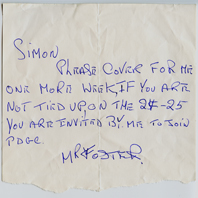 SIMON
PLEASE COVER FOR ME
ONE MORE WEEK, IF YOU ARE
NOT TIED UP, ON THE 24-25
YOU ARE INVITED BY ME TO JOIN
PDGC.
MR FOSTER.